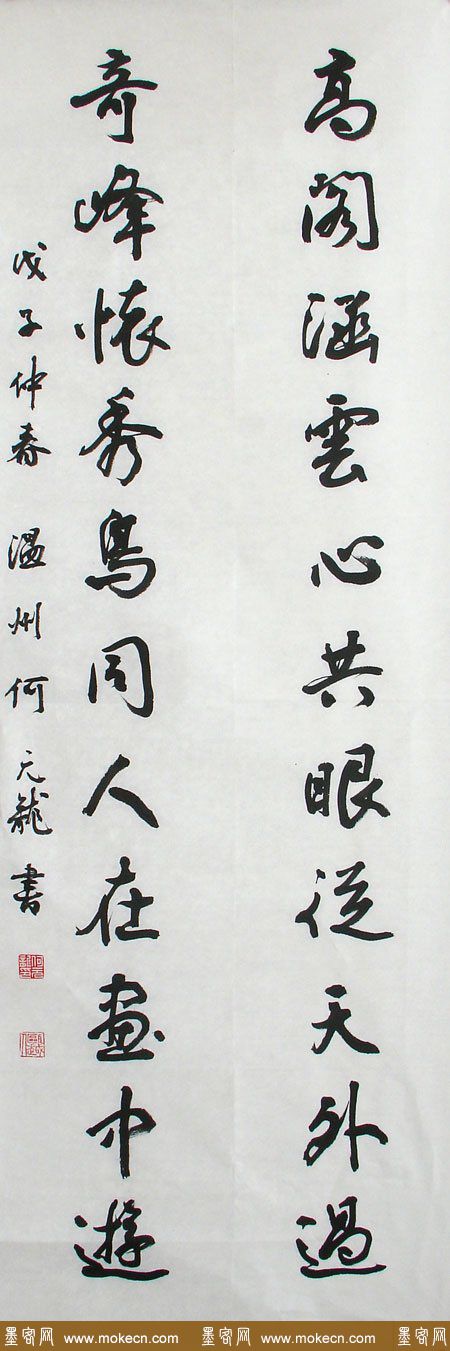 高阁涵雲心共眼從天外過
奇峰懷秀鳥同人在畫中遊
戊子仲春 温州何元龍書
墨客网 www.mokecn.com 墨客网 www.mokecn.com